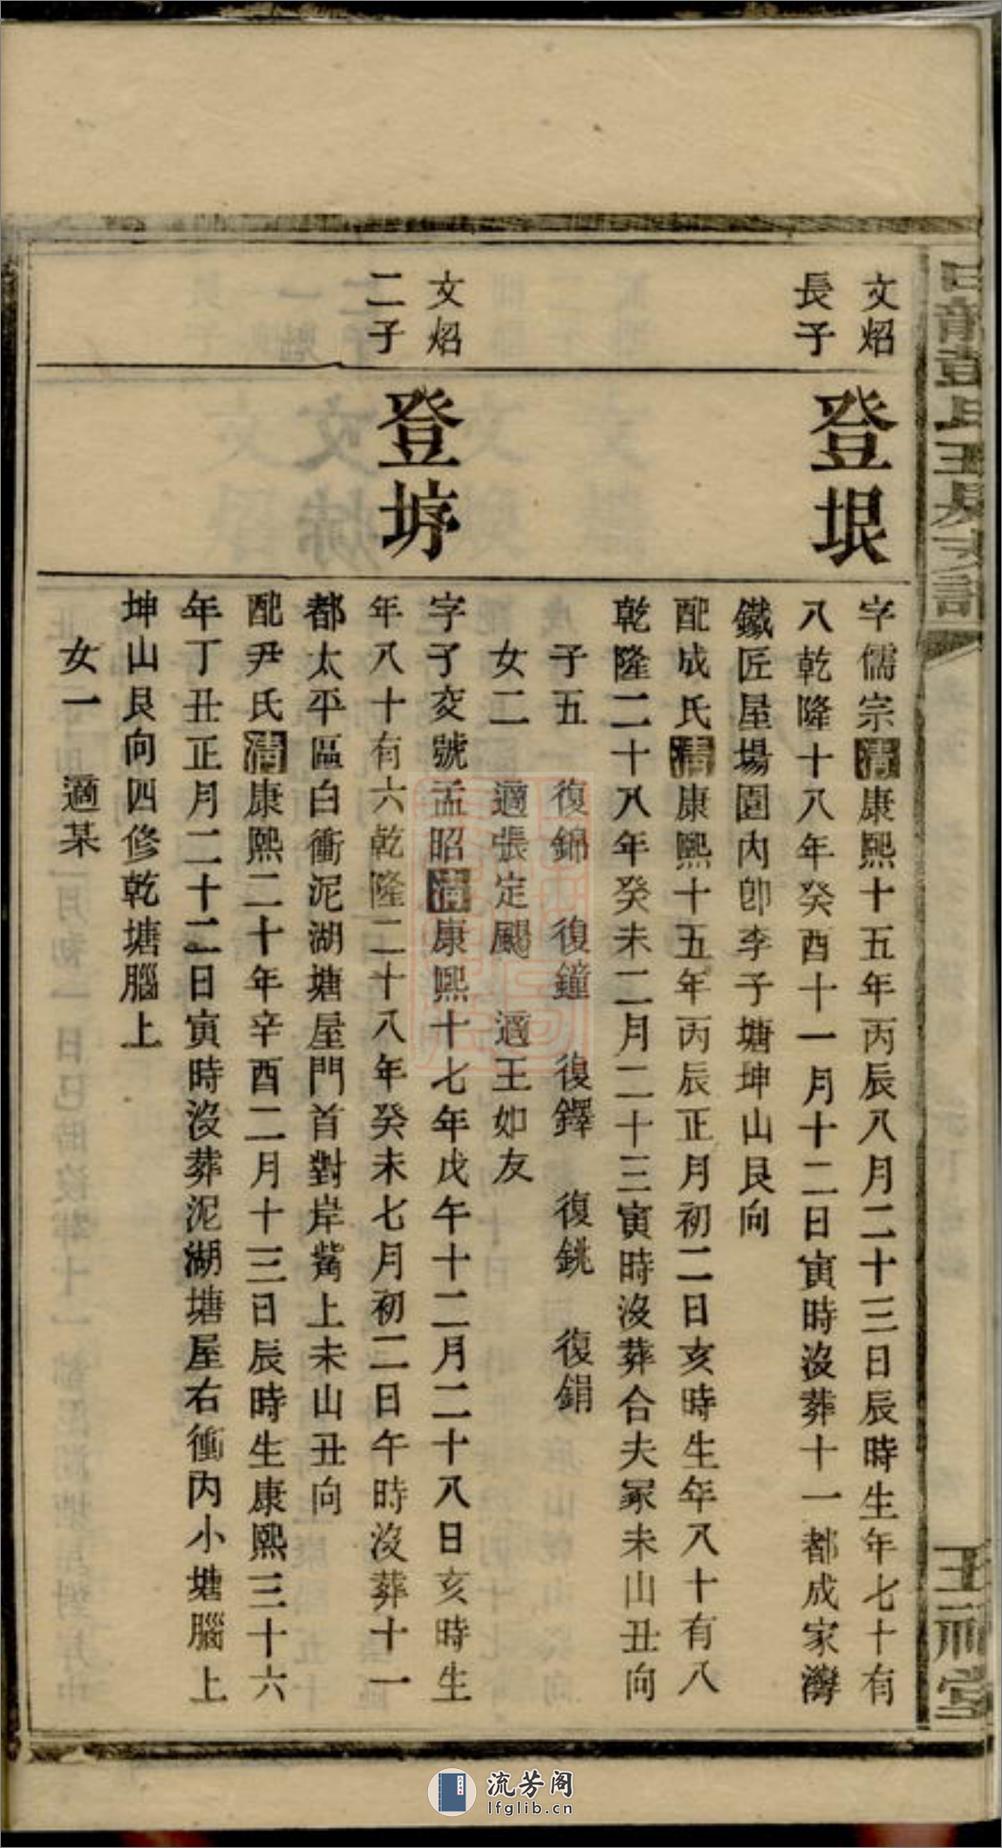 文炤
長子
登垠
字儒宗清康熙十五年丙辰八月二十三日辰時生年七十有
八乾隆十八年癸酉十一月十二日寅時沒葬十一都成家灣
鐵匠屋場園內卽李子塘坤山艮向
配成氏清康熙十五年丙辰正月初二日亥時生年八十有八
乾隆二十八年癸未二月二十三寅時沒葬合夫冢未山丑向
子五 復錦 復鐘 復鐸 復銚 復鋗
女二 適張定颺 適王如友
文炤
二子
登垿
字子交號孟昭清康熙十七年戊午十二月二十八日亥時生
年八十有六乾隆二十八年癸未七月初二日午時沒葬十一
都太平區白衝泥湖塘屋門首對岸觜上未山丑向
配尹氏清康熙二十年辛酉二月十三日辰時生康熙三十六
年丁丑正月二十二日寅時沒葬泥湖塘屋右衝內小塘腦上
坤山艮向四修乾塘腦上
女一 適某
流芳阁
lfglib.cn